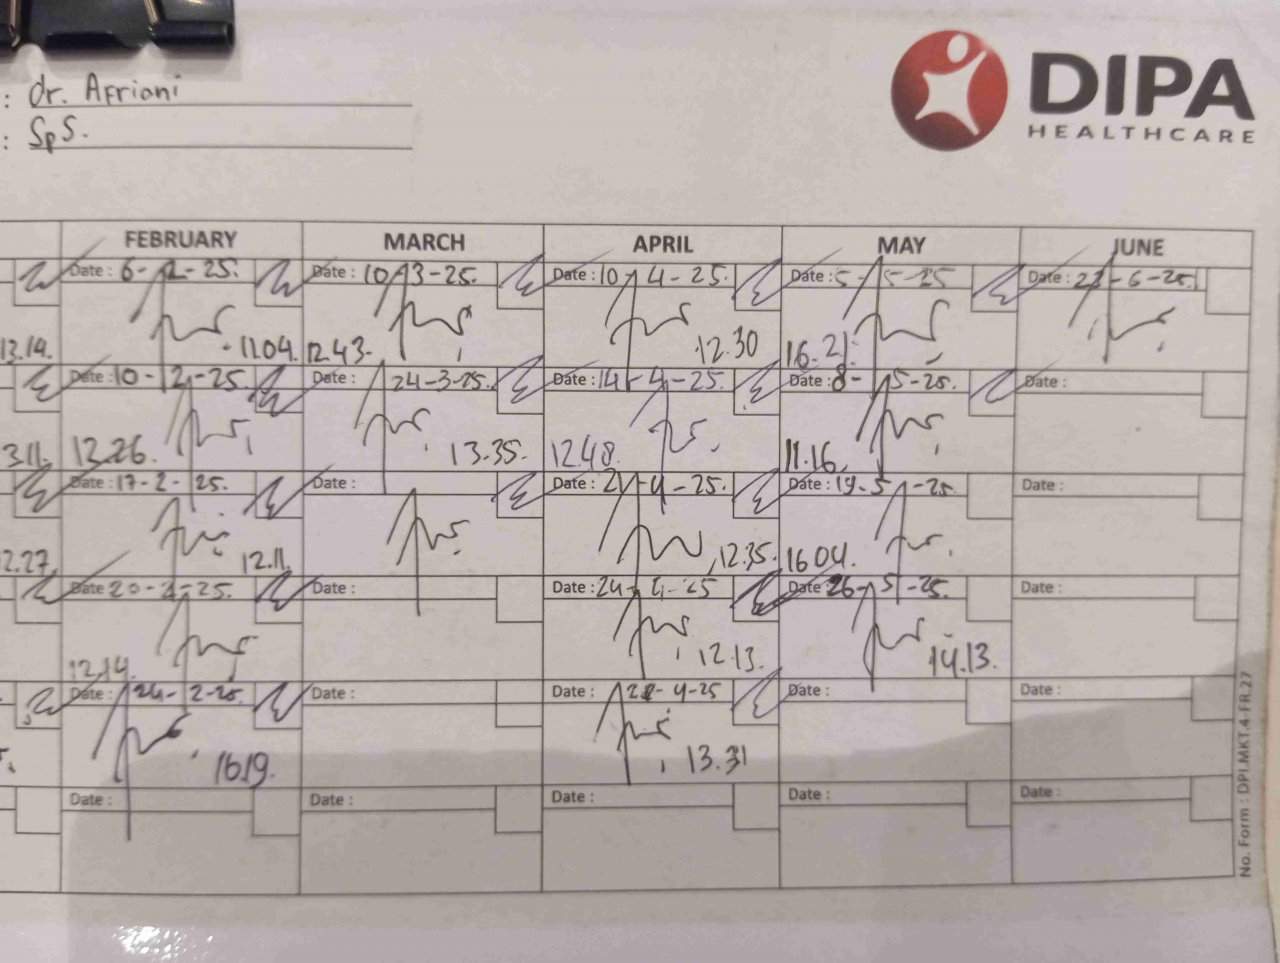 : dr. Afriani
: SpS.
DIPA
HEALTHCARE
FEBRUARY MARCH APRIL MAY JUNE
Date : 6-2-25. Date : 10-3-25. Date : 10-4-25. Date : 5-5-25 Date : 23-6-25.
13.14. 11.04. 12.43. 12.30 16.21.
Date : 10-2-25. Date : 24-3-25. Date : 14-4-25. Date : 8-5-25. Date :
3.11. 12.26. 13.35. 12.48. 11.16.
Date : 17-2-25. Date : Date : 21-4-25. Date : 19-5-25. Date :
2.27. 12.11. 12.35. 16.04.
Date 20-2-25. Date : Date : 24-4-25 Date : 26-5-25. Date :
12.14. 12.13. 14.13.
Date : 24-2-25. Date : Date : 28-4-25 Date : Date :
16.19. 13.31
Date : Date : Date : Date : Date :
No. Form : DPI.MKT.4-FR.27